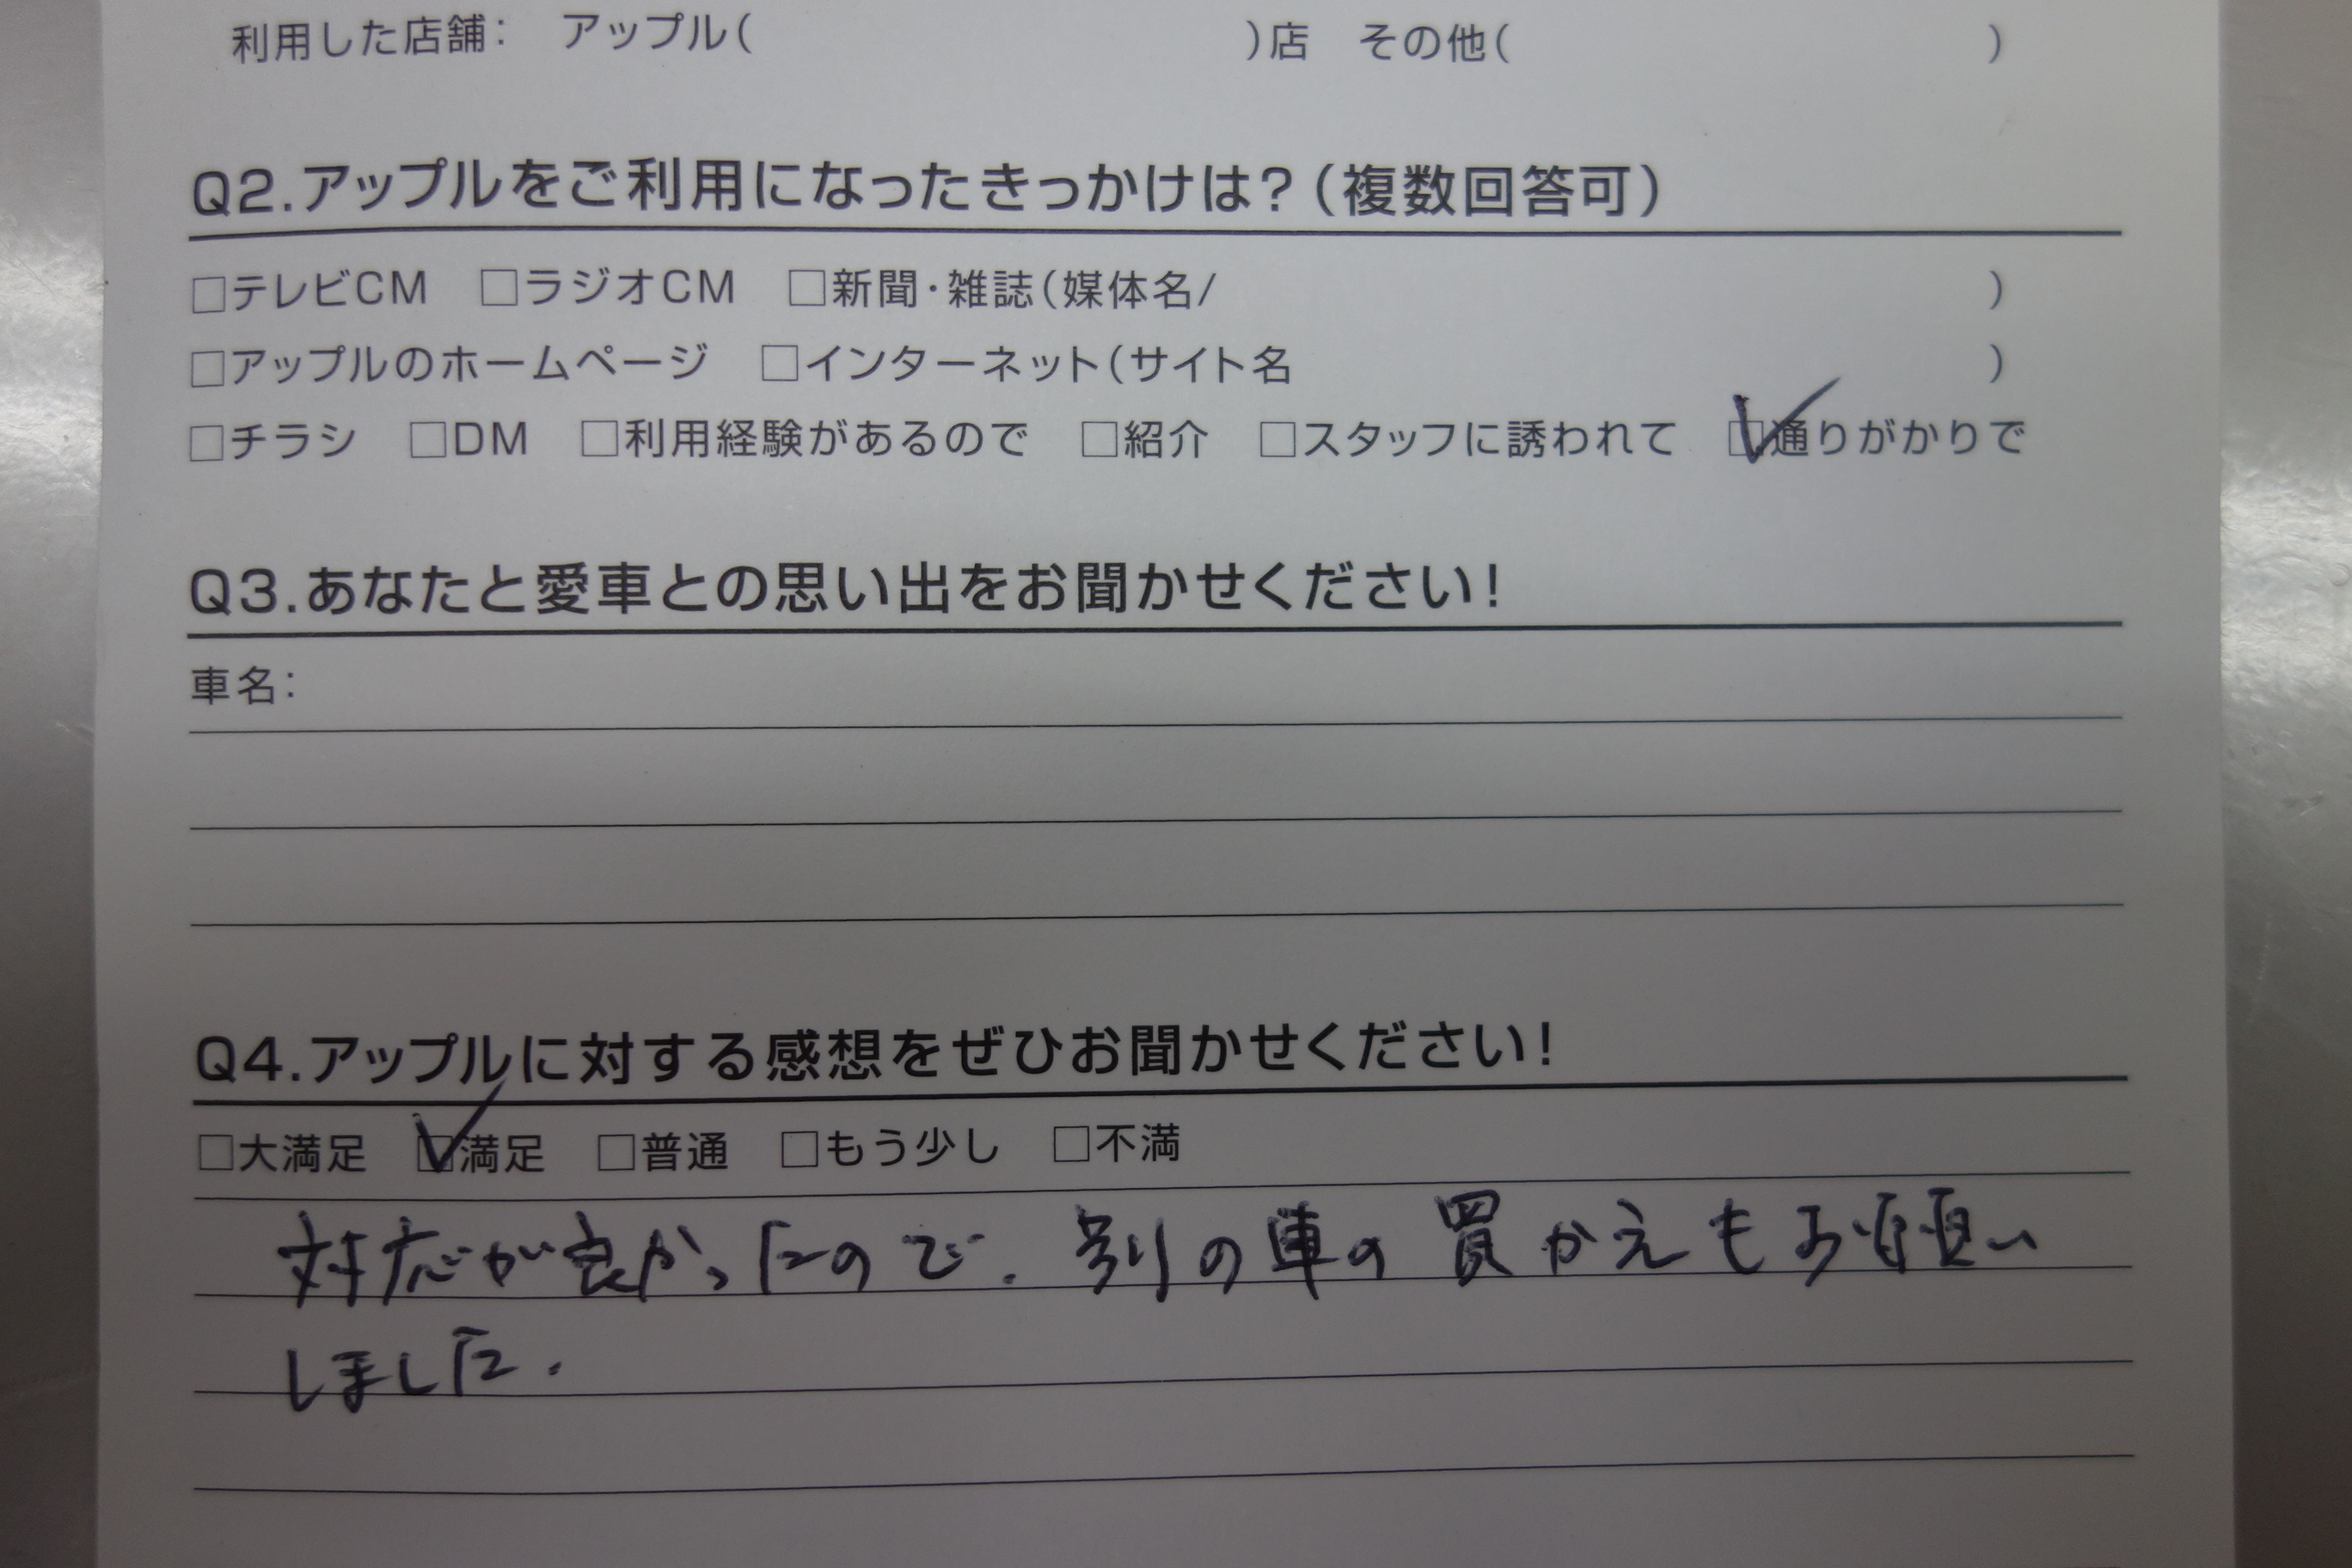 利用した店舗： アップル( )店 その他( )
Q2.アップルをご利用になったきっかけは？(複数回答可)
□テレビCM □ラジオCM □新聞・雑誌(媒体名/ )
□アップルのホームページ □インターネット(サイト名 )
□チラシ □DM □利用経験があるので □紹介 □スタッフに誘われて ☑通りがかりで
Q3.あなたと愛車との思い出をお聞かせください！
車名：
Q4.アップルに対する感想をぜひお聞かせください！
□大満足 ☑満足 □普通 □もう少し □不満
対応が良かったので、別の車の買かえもお願い
しました。